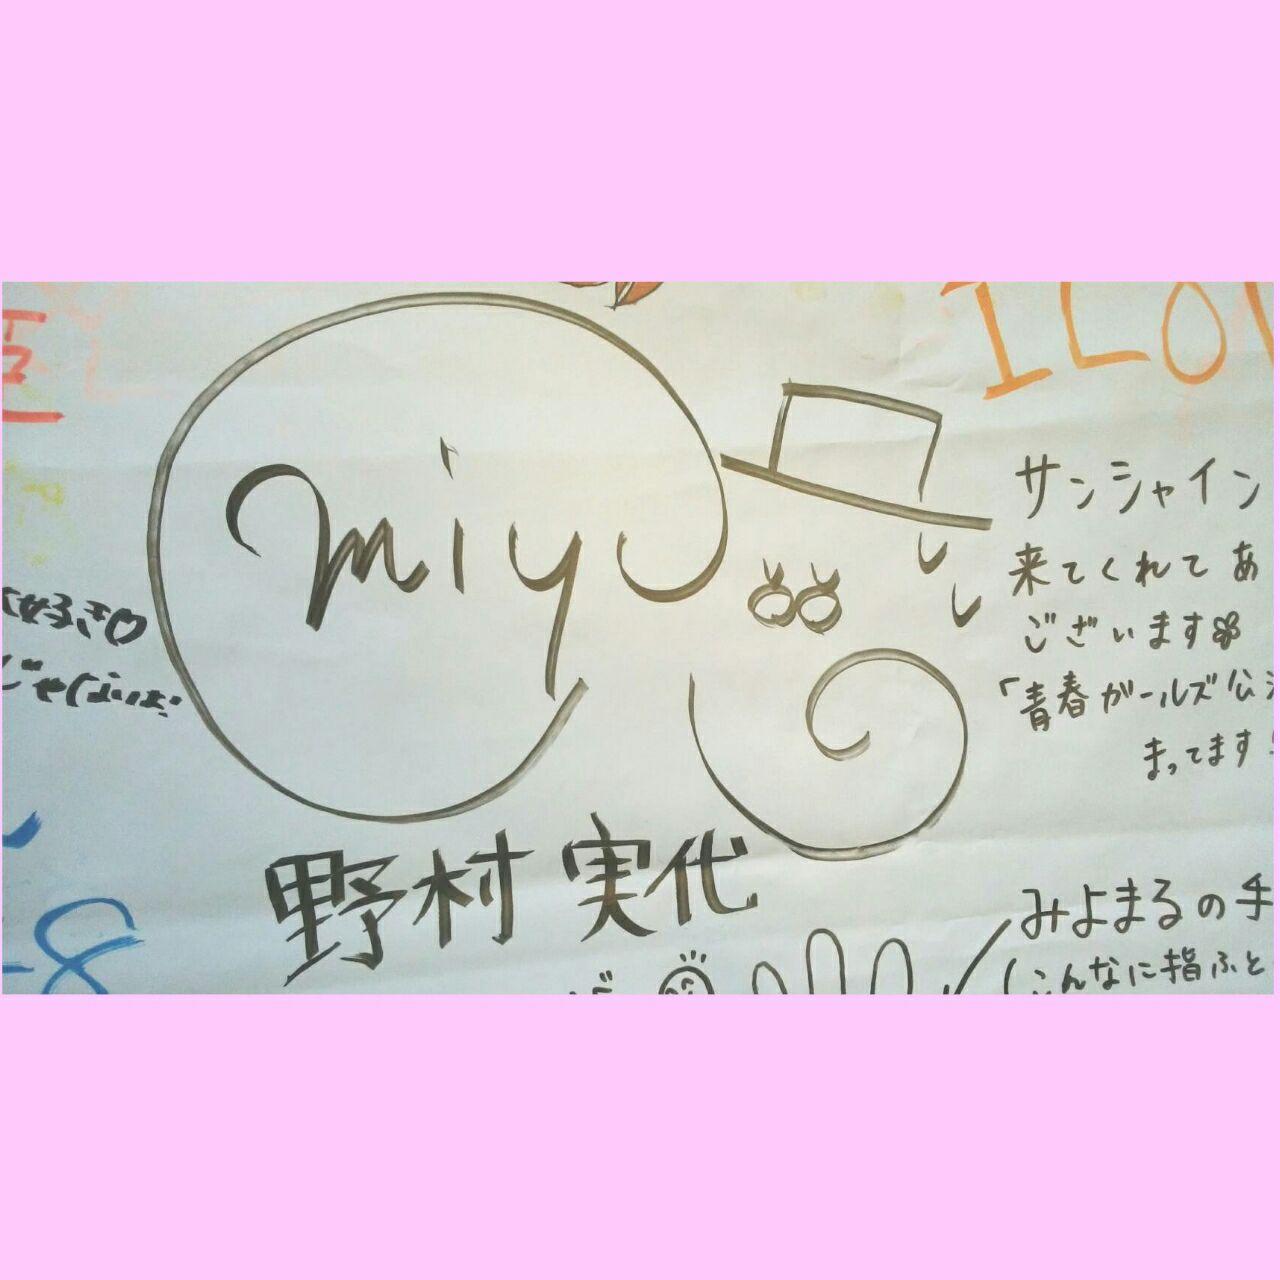 ILO
miyo
サンシャイン
来てくれてあ
ございます
「青春ガールズ公
まってます
野村実代
みよまるの手
こんなに指ふと
8